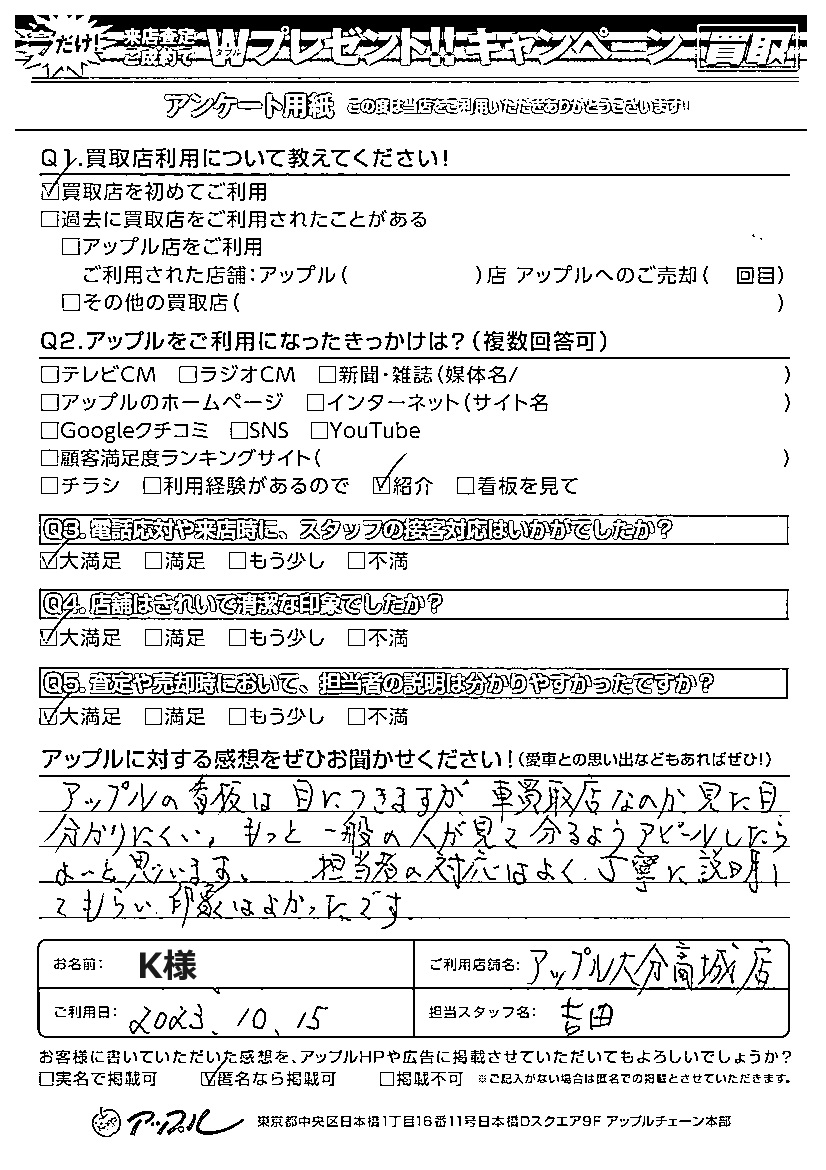 今だけ! 来店査定ご成約で Wプレゼント!!キャンペーン 買取
アンケート用紙 この度は当店をご利用いただきありがとうございます!!
Q1.買取店利用について教えてください!
☑買取店を初めてご利用
□過去に買取店をご利用されたことがある
□アップル店をご利用
ご利用された店舗:アップル( )店 アップルへのご売却( 回目)
□その他の買取店( )
Q2.アップルをご利用になったきっかけは?(複数回答可)
□テレビCM □ラジオCM □新聞・雑誌(媒体名/ )
□アップルのホームページ □インターネット(サイト名 )
□Googleクチコミ □SNS □YouTube
□顧客満足度ランキングサイト( )
□チラシ □利用経験があるので ☑紹介 □看板を見て
Q3.電話応対や来店時に、スタッフの接客対応はいかがでしたか?
☑大満足 □満足 □もう少し □不満
Q4.店舗はきれいで清潔な印象でしたか?
☑大満足 □満足 □もう少し □不満
Q5.査定や売却時において、担当者の説明は分かりやすかったですか?
☑大満足 □満足 □もう少し □不満
アップルに対する感想をぜひお聞かせください!(愛車との思い出などもあればぜひ!)
アップルの看板は目につきますが 車買取店なのか見た目
分かりにくい。もっと一般の人が見て分るようアピールしたら
よいと思います。 担当者の対応はよく、丁寧に説明し
てもらい印象はよかったです。
お名前: K様 ご利用店舗名: アップル大分高城店
ご利用日: 2023.10.15 担当スタッフ名: 吉田
お客様に書いていただいた感想を、アップルHPや広告に掲載させていただいてもよろしいでしょうか?
□実名で掲載可 ☑匿名なら掲載可 □掲載不可 ※ご記入がない場合は匿名での掲載とさせていただきます。
アップル 東京都中央区日本橋1丁目16番11号日本橋Dスクエア9F アップルチェーン本部